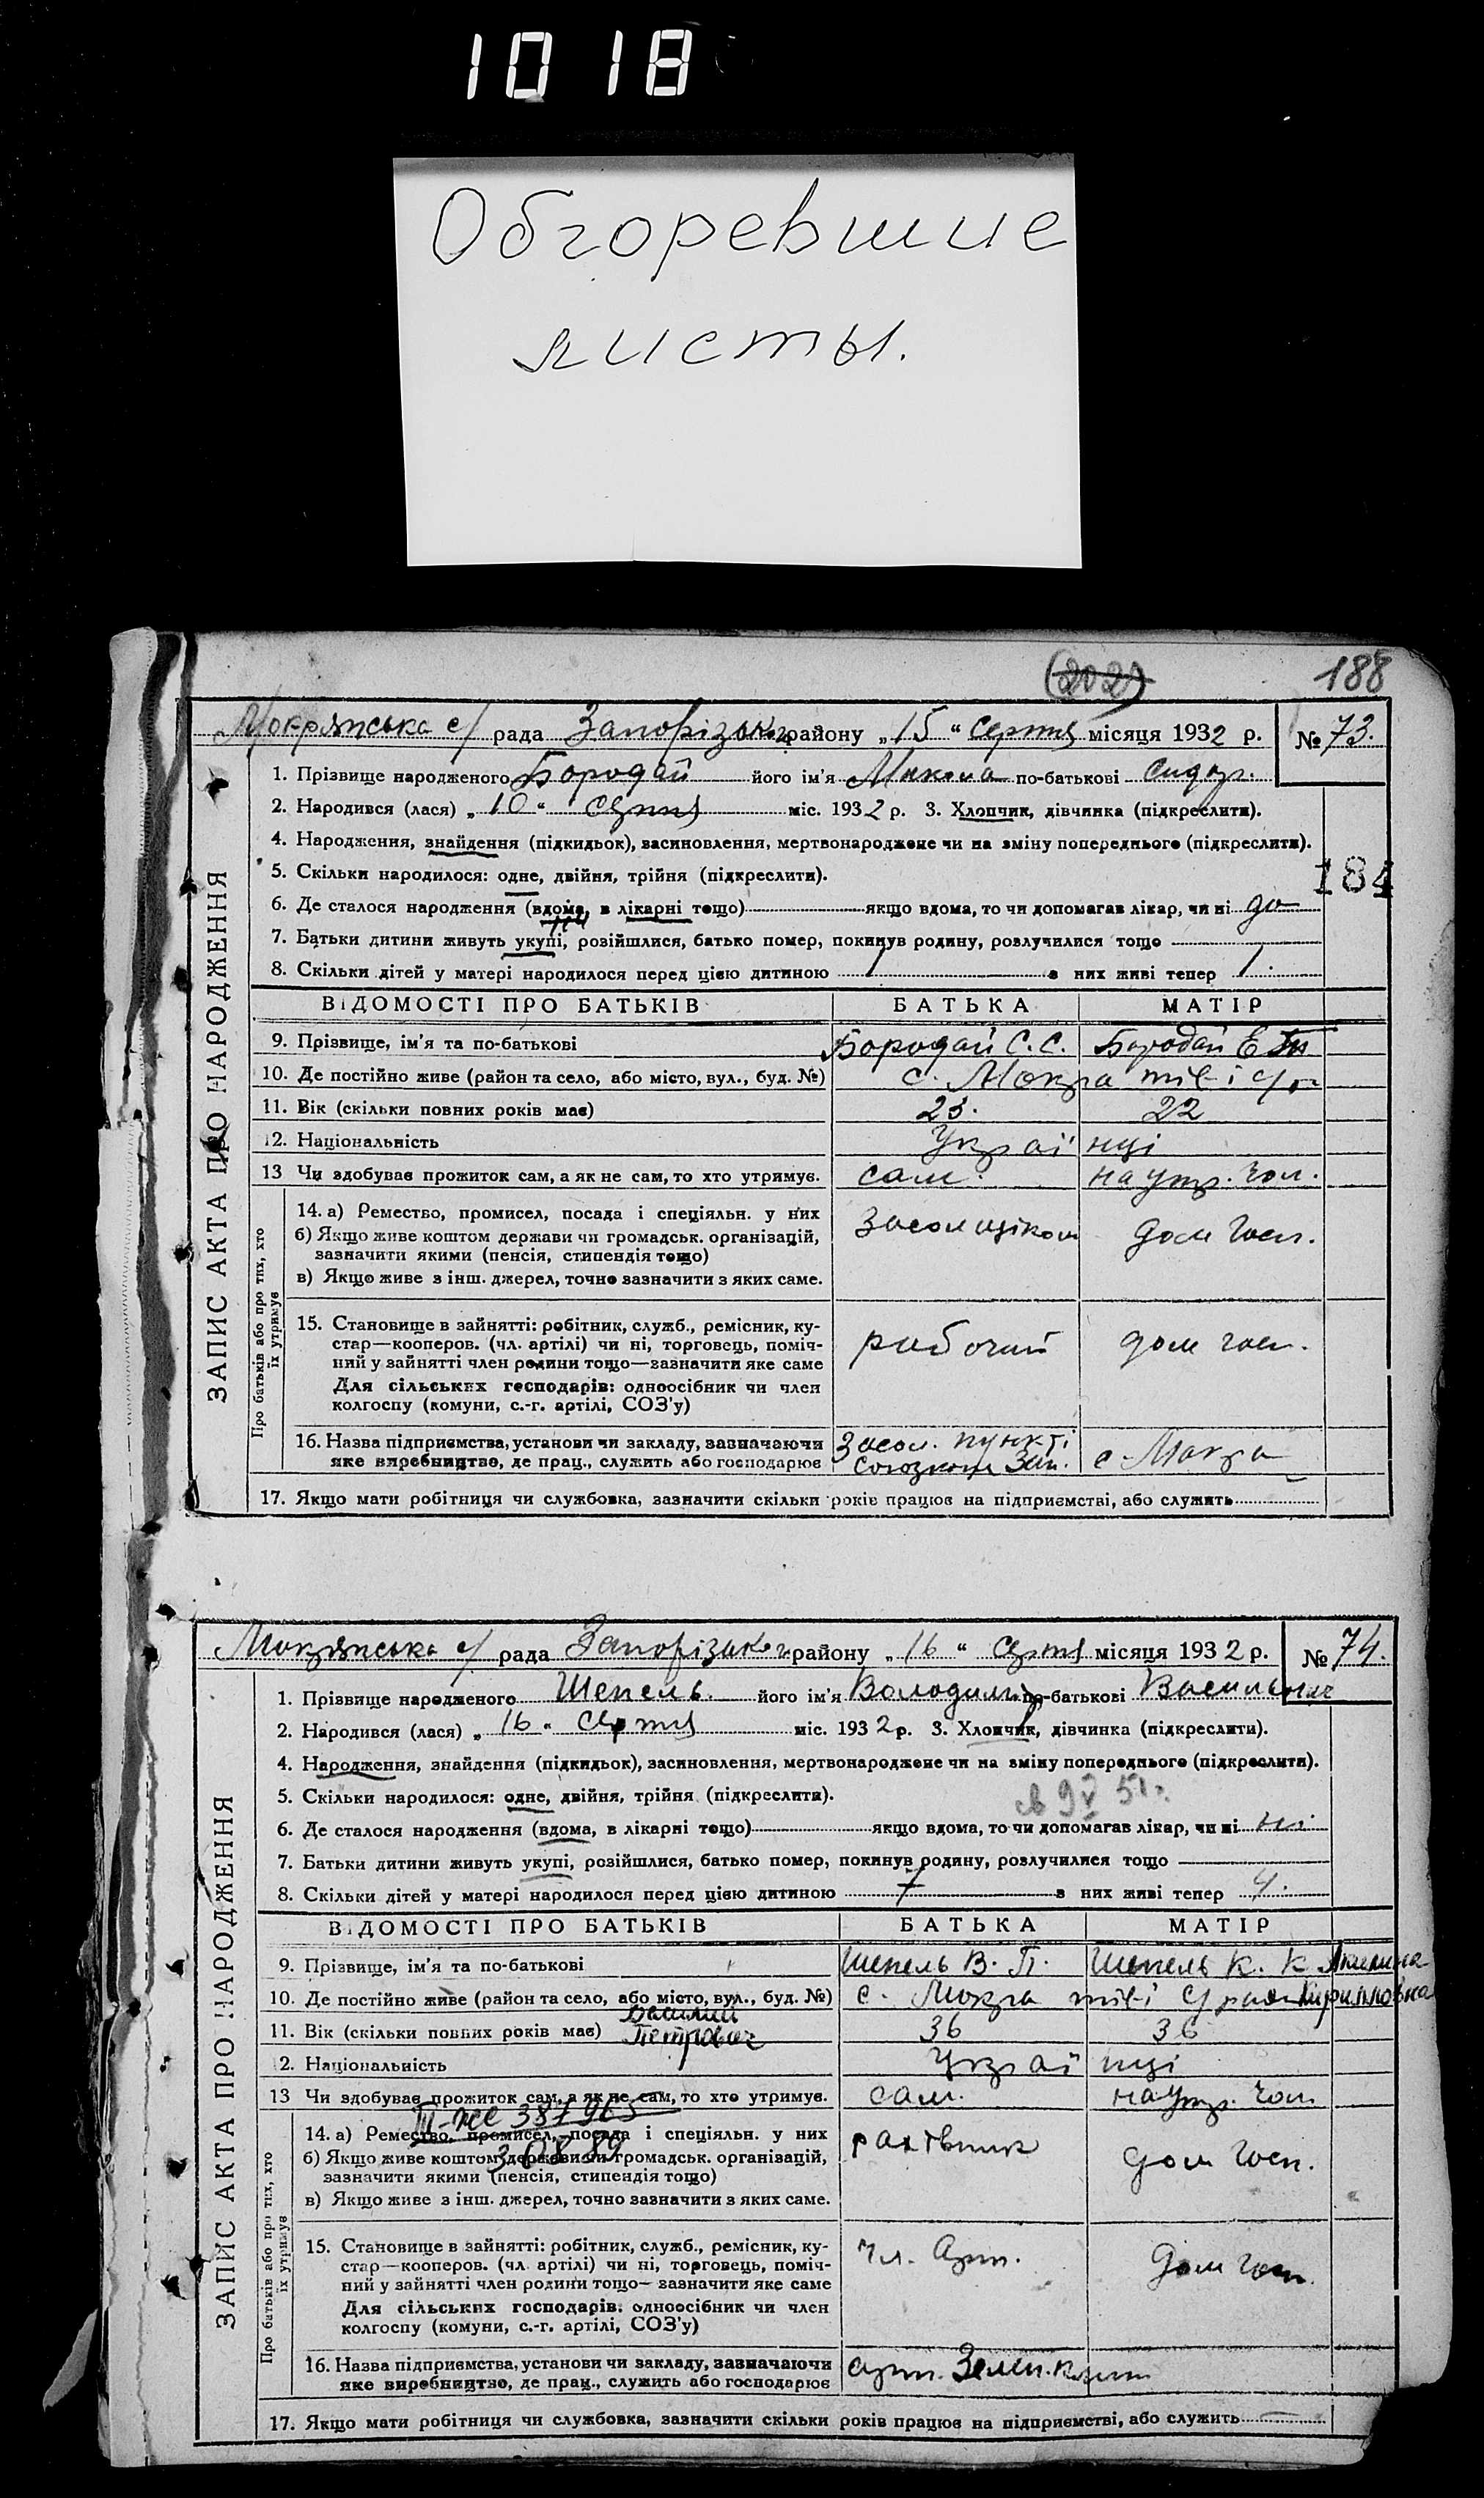 1018
Обгоревшие
листы.
(202) 188
Мокрянська с/ рада Запорізьк району „15“ серпня місяця 1932 р. № 73.
1. Прізвище народженого Бородай його ім'я Микола по-батькові Сидор.
2. Народився (лася) „10“ серпня міс. 1932 р. 3. Хлопчик, дівчинка (підкреслити).
4. Народження, знайдення (підкидьок), васиновлення, мертвонароджене чи на зміну попереднього (підкреслити).
5. Скільки народилося: одне, двійня, трійня (підкреслити).
184
6. Де сталося народження (вдома, в лікарні тощо) якщо вдома, то чи допомагав лікар, чи ні
7. Батьки дитини живуть укупі, розійшлися, батько помер, покинув родину, розлучилися тощо
8. Скільки дітей у матері народилося перед цією дитиною 1 з них живі тепер 1.
ВІДОМОСТІ ПРО БАТЬКІВ БАТЬКА МАТІР
9. Прізвище, ім'я та по-батькові Бородай С. С. Бородай Е
10. Де постійно живе (район та село, або місто, вул., буд. №) с. Мокра
11. Вік (скільки повних років має) 23. 22
12. Національність Украї нці
13 Чи здобуває прожиток сам, а як не сам, то хто утримує. сам. на утр. чол.
ЗАПИС АКТА ПРО НАРОДЖЕННЯ
Про батьків або про тих, хто їх утримує
14. а) Ремество, промисел, посада і спеціяльн. у них
б) Якщо живе коштом держави чи громадськ. організацій,
зазначити якими (пенсія, стипендія тощо)
в) Якщо живе з інш. джерел, точно зазначити з яких саме.
дом госп.
15. Становище в зайнятті: робітник, служб., ремісник, ку-
стар—кооперов. (чл. артілі) чи ні, торговець, поміч-
ний у зайнятті член родини тощо—зазначити яке саме
Для сільських господарів: одноосібник чи член
колгоспу (комуни, с.-г. артілі, СОЗ'у)
рабочий дом госп.
16. Назва підприємства, установи чи закладу, зазначаючи
яке виробництво, де прац., служить або господарює
Засол. пункті
с Мокра
17. Якщо мати робітниця чи службовка, зазначити скільки років працює на підприємстві, або служить
Мокрянська с/ рада Запорізьког району „16“ серпня місяця 1932 р. № 74.
1. Прізвище народженого Шепель. його ім'я Володимир по-батькові Васильович
2. Народився (лася) „16“ серпня міс. 1932 р. 3. Хлопчик, дівчинка (підкреслити).
4. Народження, знайдення (підкидьок), васиновлення, мертвонароджене чи на зміну попереднього (підкреслити).
5. Скільки народилося: одне, двійня, трійня (підкреслити).
6. Де сталося народження (вдома, в лікарні тощо) якщо вдома, то чи допомагав лікар, чи ні ні
7. Батьки дитини живуть укупі, розійшлися, батько помер, покинув родину, розлучилися тощо
8. Скільки дітей у матері народилося перед цією дитиною 7 з них живі тепер 4.
ВІДОМОСТІ ПРО БАТЬКІВ БАТЬКА МАТІР
9. Прізвище, ім'я та по-батькові Шепель В. П. Шепель К. К Акилина
10. Де постійно живе (район та село, або місто, вул., буд. №) с. Мокра Кирилловна
Василий
11. Вік (скільки повних років має) Петрович 36 36
12. Національність Украї нці
13 Чи здобуває прожиток сам, а як не сам, то хто утримує. сам. на утр. чол
ЗАПИС АКТА ПРО НАРОДЖЕННЯ
Про батьків або про тих, хто їх утримує
14. а) Ремество, промисел, посада і спеціяльн. у них
б) Якщо живе коштом держави чи громадськ. організацій,
зазначити якими (пенсія, стипендія тощо)
в) Якщо живе з інш. джерел, точно зазначити з яких саме.
дом госп.
15. Становище в зайнятті: робітник, служб., ремісник, ку-
стар—кооперов. (чл. артілі) чи ні, торговець, поміч-
ний у зайнятті член родини тощо— зазначити яке саме
Для сільських господарів: одноосібник чи член
колгоспу (комуни, с.-г. артілі, СОЗ'у)
чл. Арт. дом госп.
16. Назва підприємства, установи чи закладу, зазначаючи
яке виробництво, де прац., служить або господарює
арт.
17. Якщо мати робітниця чи службовка, зазначити скільки років працює на підприємстві, або служить